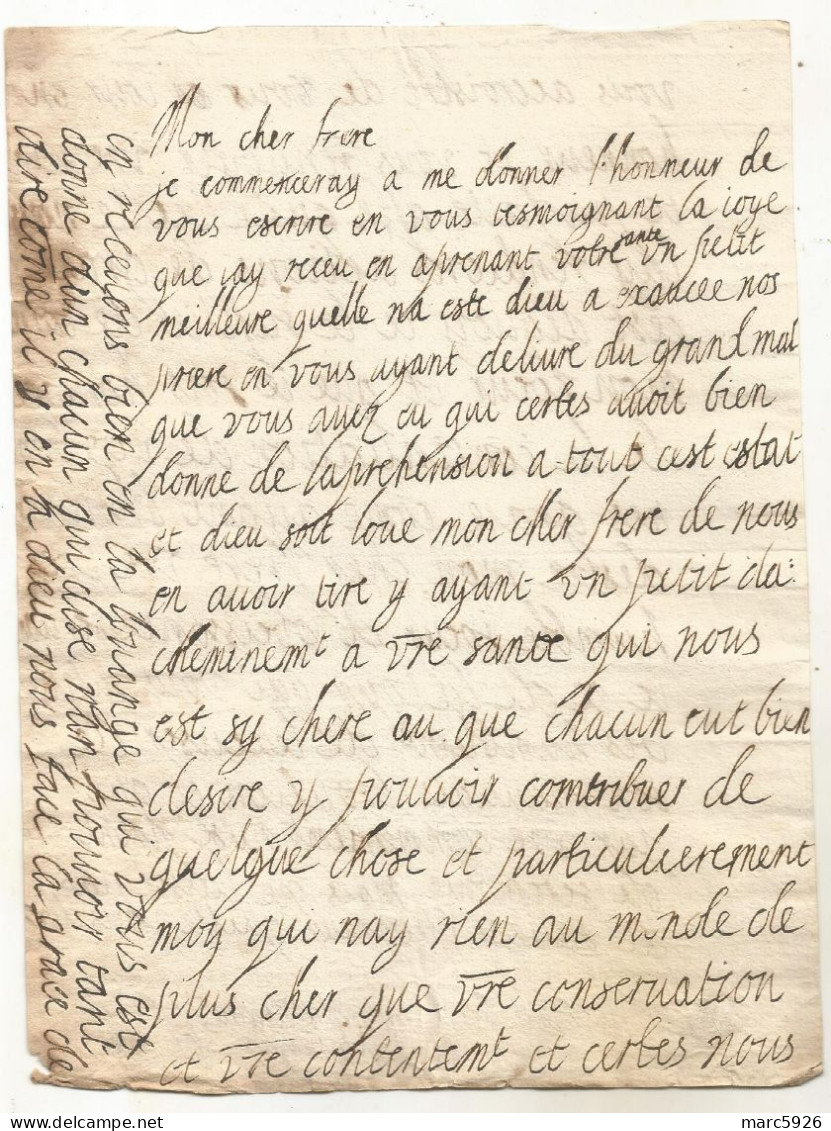 Mon cher frere
je commenceray a me donner l'honneur de
vous escrire en vous tesmoignant la ioye
que iay receu en aprenant votre sante un petit
meilleure quelle na este dieu a exaucee nos
priere en vous ayant deliure du grand mal
que vous auez eu qui certes auoit bien
donne de laprehension a tout cest estat
et dieu soit loue mon cher frere de nous
en auoir tire y ayant un petit da:
cheminemt a vre sante qui nous
est sy chere au que chacun eut bien
desire y pouuoir contribuer de
quelque chose et particulierement
moy qui nay rien au monde de
plus cher que vre conseruation
et vre contentemt et certes nous
en receuons bien en la louange qui vous est
donne dun chacun qui dise nan pouuoir tant
dire come il y en a dieu nous face la grace de
marc5926